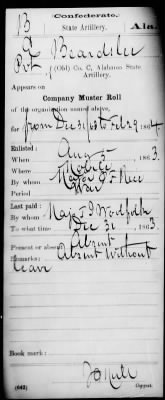 B
Confederate.
State Artillery.
Ala.
(Old) Co. C, Alabama State
Artillery.
Appears on
Company Muster Roll
of the organization named above,
for from Dec 31, 1863 to Feb 29, 1864
Enlisted:
When Aug 5, 1863.
Where Mobile
By whom
Period War
Last paid:
By whom Maj
To what time Dec 31, 1863.
Present or absent Absent
Remarks: Absent without
leave
Book mark:
(642)
Copyist.